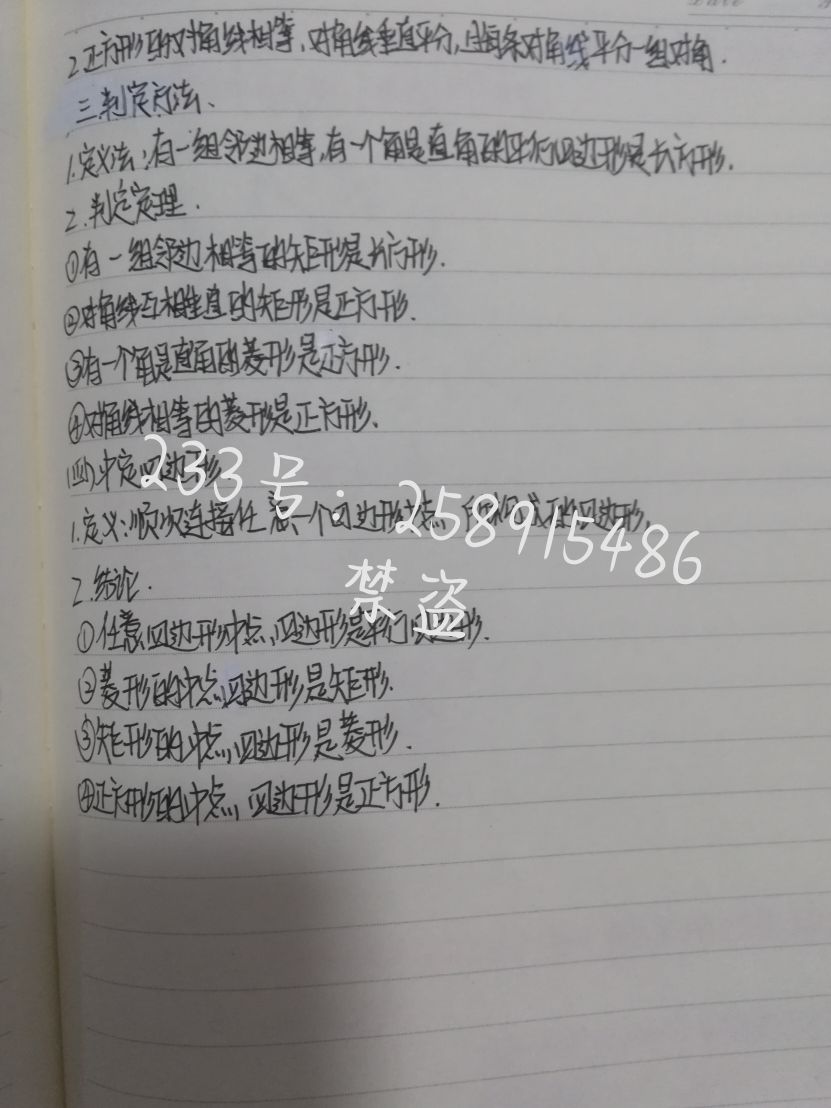 2.正方形的对角线相等,对角线垂直平分,且每条对角线平分一组对角.
三.判定方法、
1.定义法:有一组邻边相等,有一个角是直角的平行四边形是长方形.
2.判定定理.
①有一组邻边相等的矩形是长方形.
②对角线互相垂直的矩形是正方形.
③有一个角是直角的菱形是正方形.
④对角线相等的菱形是正方形.
(四)中定四边形
233号:258915486
1.定义:顺次连接任意一个四边形中点 所构成的四边形.
禁盗
2.结论.
①任意四边形中点,四边形是平行四边形.
②菱形的中点,四边形是矩形.
③矩形的中点,四边形是菱形.
④正方形的中点,四边形是正方形.